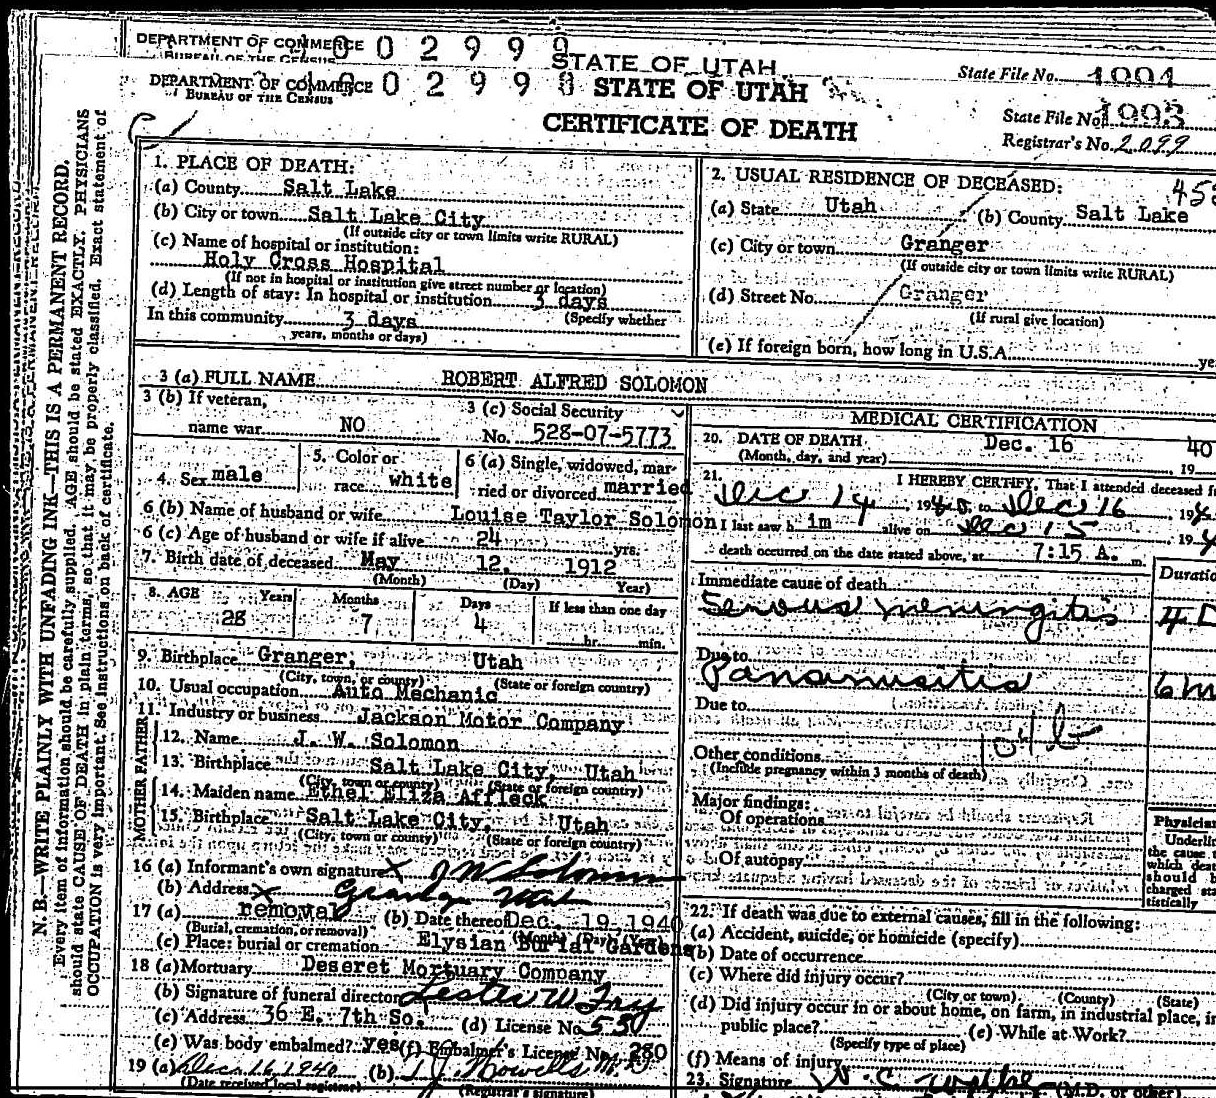 DEPARTMENT OF COMMERCE
BUREAU OF THE CENSUS
002999
STATE OF UTAH
State File No. 1994
DEPARTMENT OF COMMERCE
BUREAU OF THE CENSUS
002998
STATE OF UTAH
State File No. 1993
CERTIFICATE OF DEATH
Registrar's No. 2099
N. B.—WRITE PLAINLY WITH UNFADING INK—THIS IS A PERMANENT RECORD.
Every item of information should be carefully supplied. AGE should be stated EXACTLY. PHYSICIANS
should state CAUSE OF DEATH in plain terms, so that it may be properly classified. Exact statement of
OCCUPATION is very important. See instructions on back of certificate.
1. PLACE OF DEATH:
(a) County Salt Lake
(b) City or town Salt Lake City
(If outside city or town limits write RURAL)
(c) Name of hospital or institution:
Holy Cross Hospital
(If not in hospital or institution give street number or location)
(d) Length of stay: In hospital or institution 3 days
(Specify whether
In this community 3 days
years, months or days)
2. USUAL RESIDENCE OF DECEASED:
(a) State Utah (b) County Salt Lake
(c) City or town Granger
(If outside city or town limits write RURAL)
(d) Street No. Granger
(If rural give location)
(e) If foreign born, how long in U.S.A.
3 (a) FULL NAME ROBERT ALFRED SOLOMON
3 (b) If veteran,
name war NO
3 (c) Social Security
No. 528-07-5773
4. Sex male
5. Color or
race white
6 (a) Single, widowed, mar-
ried or divorced married
6 (b) Name of husband or wife Louise Taylor Solomon
6 (c) Age of husband or wife if alive 24 yrs.
7. Birth date of deceased May 12, 1912
(Month) (Day) Year)
8. AGE Years Months Days If less than one day
28 7 4 hr. min.
9. Birthplace Granger, Utah
(City, town, or county) (State or foreign country)
10. Usual occupation Auto Mechanic
11. Industry or business Jackson Motor Company
FATHER
12. Name J. W. Solomon
13. Birthplace Salt Lake City, Utah
(City, town or county) (State or foreign country)
MOTHER
14. Maiden name Ethel Eliza Affleck
15. Birthplace Salt Lake City, Utah
(City, town or county) (State or foreign country)
16 (a) Informant's own signature X J W Solomon
(b) Address X Granger Utah
17 (a) removal (b) Date thereof Dec. 19, 1940
(Burial, cremation, or removal) (Month) (Day) (Year)
(c) Place: burial or cremation Elysian Burial Gardens
18 (a) Mortuary Deseret Mortuary Company
(b) Signature of funeral director Lester W Fry
(c) Address 36 E. 7th So. (d) License No. 530
(e) Was body embalmed? yes (f) Embalmer's License No. 280
19 (a) Dec. 16, 1940 (b)
(Date received local registrar) (Registrar's signature)
MEDICAL CERTIFICATION
20. DATE OF DEATH Dec. 16 40
(Month, day, and year) , 19
21. I HEREBY CERTIFY, That I attended deceased
Dec 14, 1940, to Dec 16, 19
I last saw h im alive on Dec 15, 19
death occurred on the date stated above, at 7:15 A. m.
Immediate cause of death Duratio
Serous meningitis 4 D
Due to
Pansinusitis 6 m
Due to
104 b
Other conditions
(Include pregnancy within 3 months of death)
Major findings:
Of operations
Of autopsy
Physician
Underlin
the cause
which dea
should b
charged sta
tistically
22. If death was due to external causes, fill in the following:
(a) Accident, suicide, or homicide (specify)
(b) Date of occurrence
(c) Where did injury occur?
(City or town) (County) (State)
(d) Did injury occur in or about home, on farm, in industrial place, in
public place? (e) While at Work?
(Specify type of place)
(f) Means of injury
23. Signature (M.D. or other)